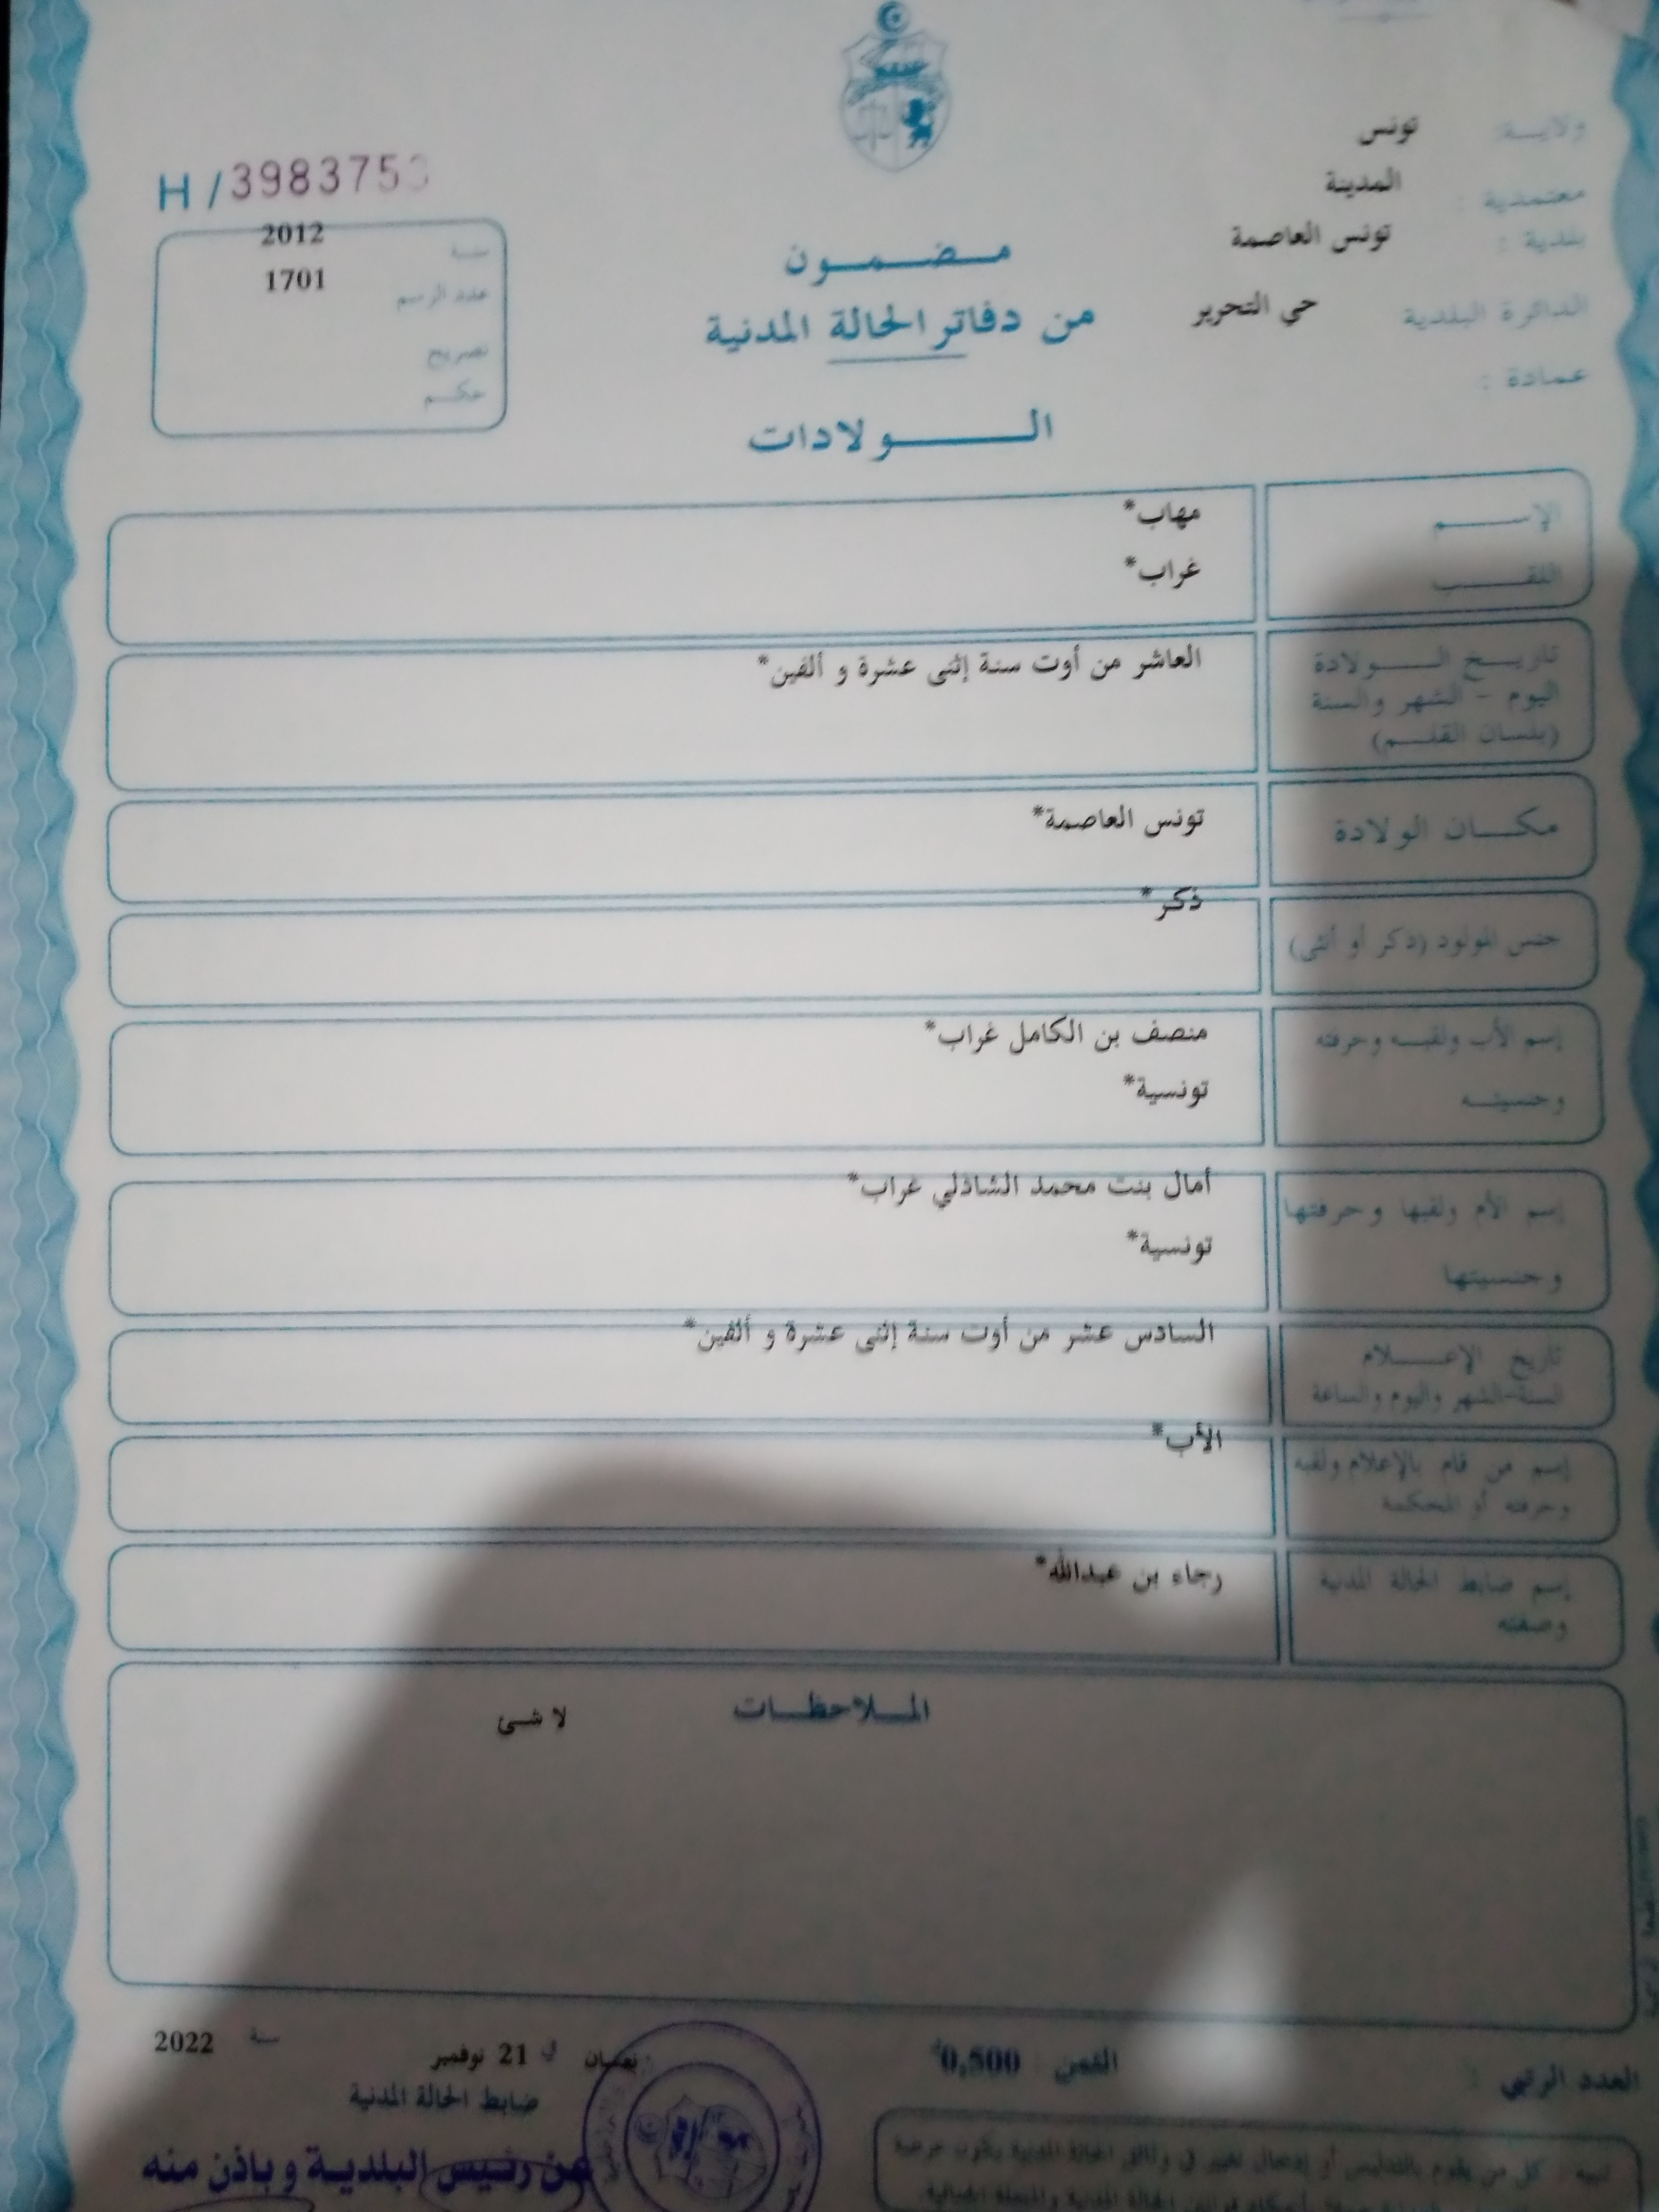 ولاية: تونس
معتمدية : المدينة
بلدية : تونس العاصمة
الدائرة البلدية حي التحرير
عمادة :
H / 398375
سنة 2012
عدد الرسم 1701
تصريح
حكم
مضمون
من دفاتر الحالة المدنية
الولادات
الإسم مهاب*
اللقب غراب*
تاريخ الولادة العاشر من أوت سنة إثنى عشرة و ألفين*
اليوم - الشهر والسنة
(بلسان القلم)
مكان الولادة تونس العاصمة*
جنس المولود (ذكر أو أنثى) ذكر*
إسم الأب ولقبه وحرفته منصف بن الكامل غراب*
وجنسيته تونسية*
إسم الأم ولقبها وحرفتها أمال بنت محمد الشاذلي غراب*
وجنسيتها تونسية*
تاريخ الإعلام السادس عشر من أوت سنة إثنى عشرة و ألفين*
السنة-الشهر واليوم والساعة
إسم من قام بالإعلام ولقبه الأب*
وحرفته أو المحكمة
إسم ضابط الحالة المدنية رجاء بن عبدالله*
وصفته
الملاحظات
لا شئ
العدد الرتبي :
الثمن : 0,500
نعسان في 21 نوفمبر سنة 2022
ضابط الحالة المدنية
عن رئيس البلدية وباذن منه
تنبيه : كل من يقوم بالتدليس أو إدخال تغيير في وثائق الحالة المدنية يكون عرضة